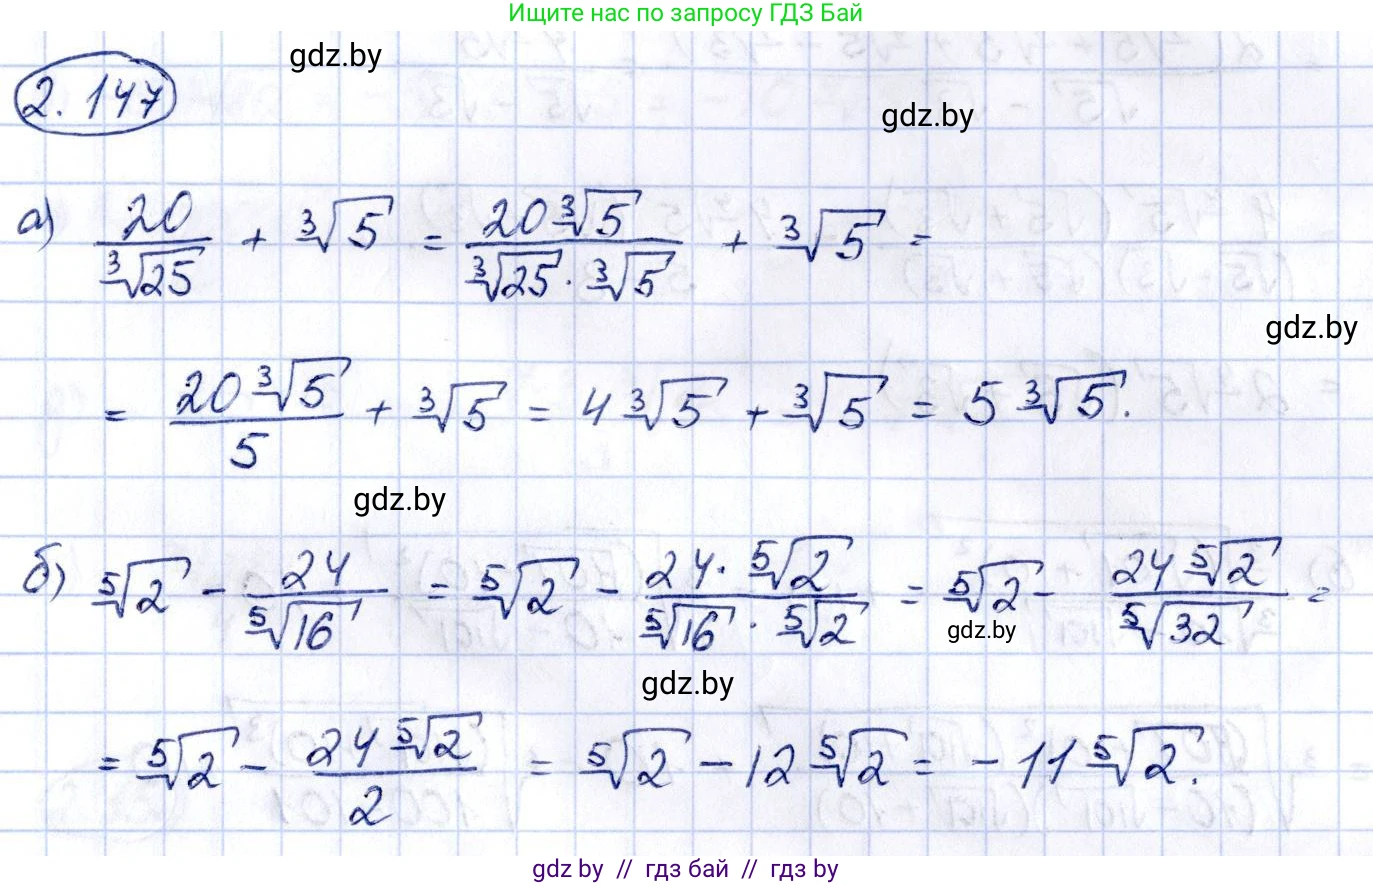 Ищите нас по запросу ГДЗ Бай
gdz.by
2.147
gdz.by
а) 20/∛25 + ∛5 = 20∛5/(∛25 · ∛5) + ∛5 =
gdz.by
= 20∛5/5 + ∛5 = 4∛5 + ∛5 = 5∛5.
gdz.by
б) ⁵√2 - 24/⁵√16 = ⁵√2 - 24·⁵√2/(⁵√16 · ⁵√2) = ⁵√2 - 24⁵√2/⁵√32 =
gdz.by
gdz.by
= ⁵√2 - 24⁵√2/2 = ⁵√2 - 12⁵√2 = -11⁵√2.
gdz by // гдз бай // гдз by